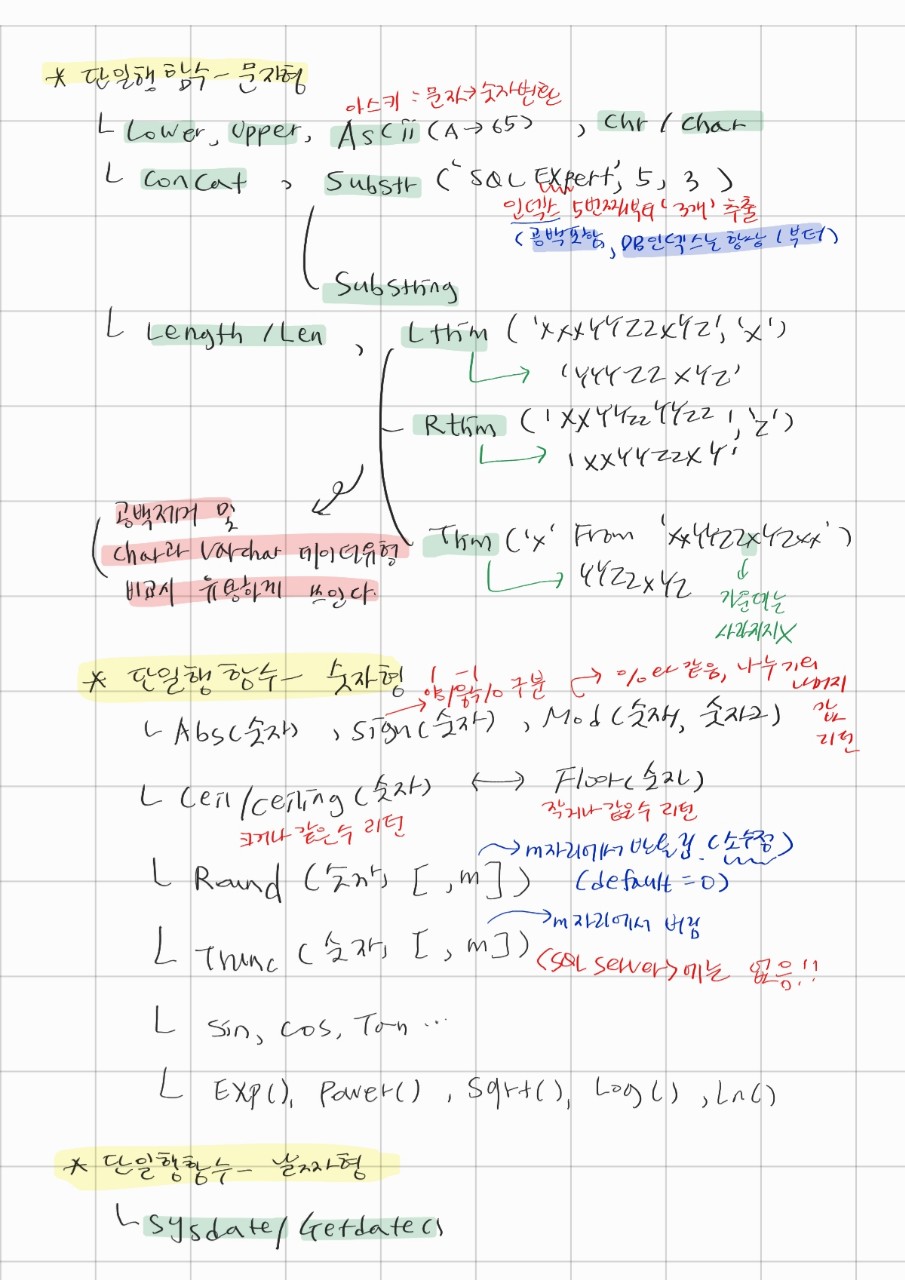 * 단일행 함수 - 문자형
아스키 : 문자→숫자변환
└ Lower, Upper, ASCii (A→65) , Chr / Char
└ Concat , Substr ('SQL Expert', 5, 3)
인덱스 5번째부터 '3개' 추출
(공백포함, DB인덱스는 항상 1부터)
Substring
└ Length / Len , Ltrim ('XXXYYZZXYZ', 'X')
'YYYZZXYZ'
Rtrim ('XXYYZZYYZZ', 'Z')
'XXYYZZXY'
공백제거 및
Char과 Varchar 데이터유형
비교시 유용하게 쓰인다.
Trim ('X' From 'XXYYZZXYZXX')
YYZZXYZ
가운데는
사라지지X
* 단일행 함수 - 숫자형
1 -1
양/음수/0 구분
%와 같음, 나누기의
나머지
값
리턴
└ Abs(숫자) , Sign(숫자) , Mod(숫자1, 숫자2)
└ Ceil/ceiling (숫자) ↔ Floor(숫자)
크거나 같은수 리턴 작거나 같은수 리턴
→m자리에서 반올림. (소수점)
└ Round (숫자, [, m]) (default = 0)
→m자리에서 버림
└ Trunc (숫자, [, m])
(SQL Server)에는 없음!!
└ Sin, Cos, Tan ...
└ EXP(), Power() , Sqrt(), Log() , Ln()
* 단일행함수 - 날짜형
└ Sysdate / Getdate()